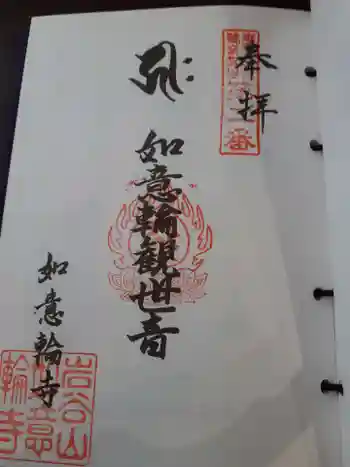 奉拝
如意輪観世音
如意輪寺
岩谷山
如意
輪寺